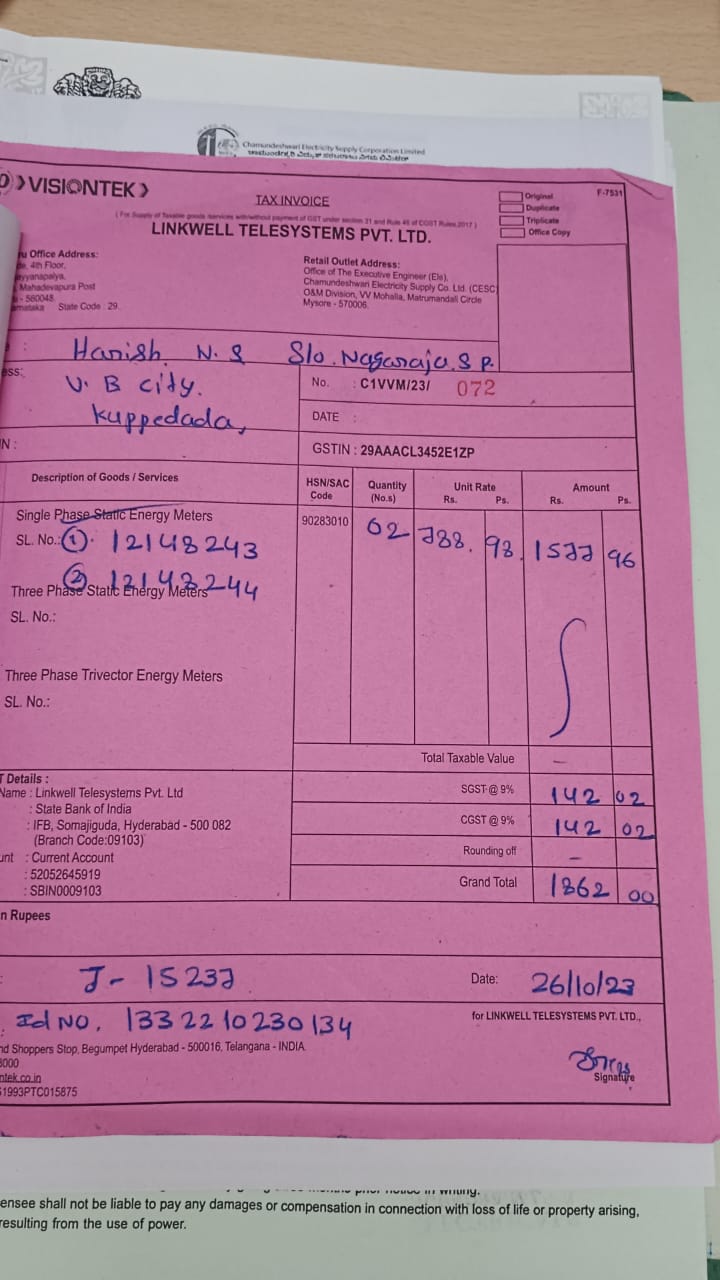 Chamundeshwari Electricity Supply Corporation Limited
VISIONTEK
TAX INVOICE
( For Supply of Taxable goods /services with/without payment of GST under section 31 and Rule 46 of CGST Rules 2017 )
LINKWELL TELESYSTEMS PVT. LTD.
Original
Duplicate
Triplicate
Office Copy
F-7531
u Office Address:
de, 4th Floor,
ayyanapalya,
Mahadevapura Post
- 560048.
arnataka State Code : 29.
Retail Outlet Address:
Office of The Executive Engineer (Ele),
Chamundeshwari Electricity Supply Co. Ltd. (CESC
O&M Division, VV Mohalla, Matrumandali Circle
Mysore - 570006.
: Harish N. S S/o. Nagaraju. S P.
ess: V. B city.
Kuppedada,
No. : C1VVM/23/ 072
DATE :
N :
GSTIN : 29AAACL3452E1ZP
Description of Goods / Services
HSN/SAC Code
Quantity (No.s)
Unit Rate Rs. Ps.
Amount Rs. Ps.
Single Phase Static Energy Meters 90283010 02 788. 98. 1577 96
SL. No.: ① 12148243
② 12148244
Three Phase Static Energy Meters
SL. No.:
Three Phase Trivector Energy Meters
SL. No.:
Total Taxable Value —
T Details :
Name : Linkwell Telesystems Pvt. Ltd
: State Bank of India
: IFB, Somajiguda, Hyderabad - 500 082
(Branch Code:09103)
unt : Current Account
: 52052645919
: SBIN0009103
SGST @ 9% 142 02
CGST @ 9% 142 02
Rounding off -
Grand Total 1862 00
n Rupees
: J- 15237
Date: 26/10/23
: Id NO. 1332210230134
for LINKWELL TELESYSTEMS PVT. LTD.,
nd Shoppers Stop, Begumpet Hyderabad - 500016, Telangana - INDIA.
8000
ntek.co.in
1993PTC015875
Signature
ensee shall not be liable to pay any damages or compensation in connection with loss of life or property arising,
resulting from the use of power.